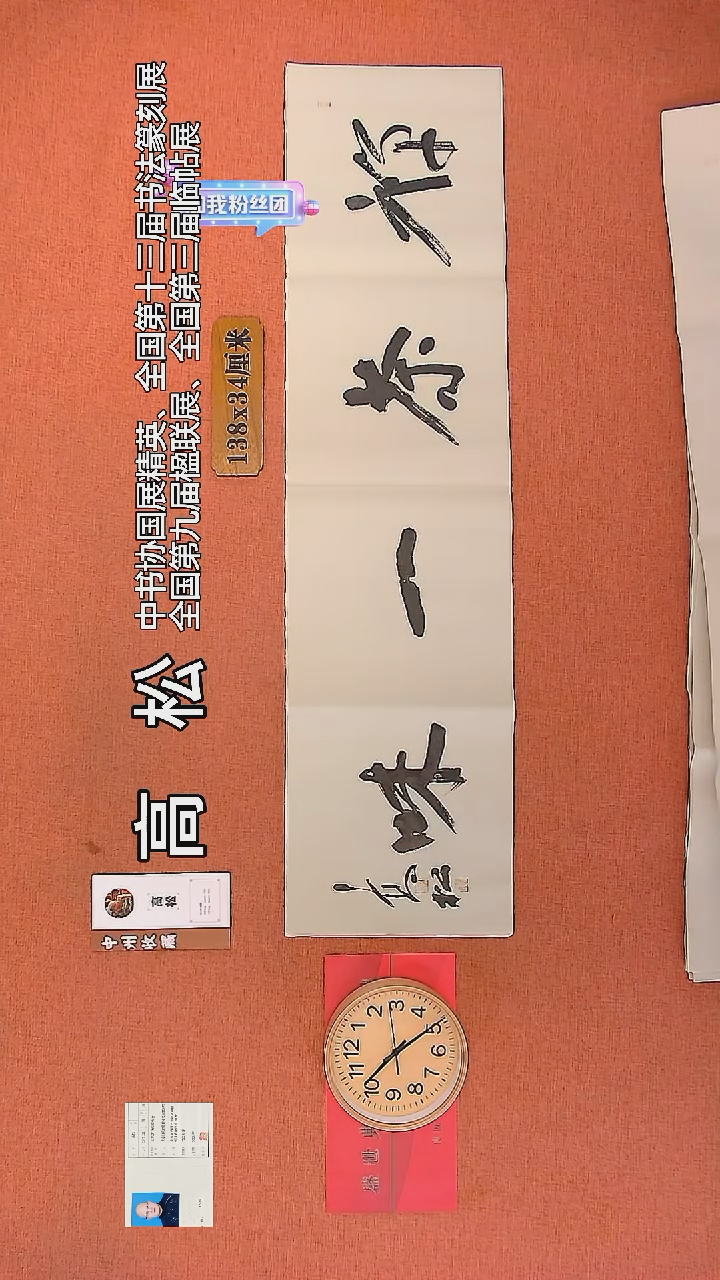 高松
中书协国展精英、全国第十三届书法篆刻展
全国第九届楹联展、全国第三届临帖展
我粉丝团
138x34厘米
禅茶一味
高松
高松
中州收展
12
1
2
3
4
5
6
7
8
9
10
11